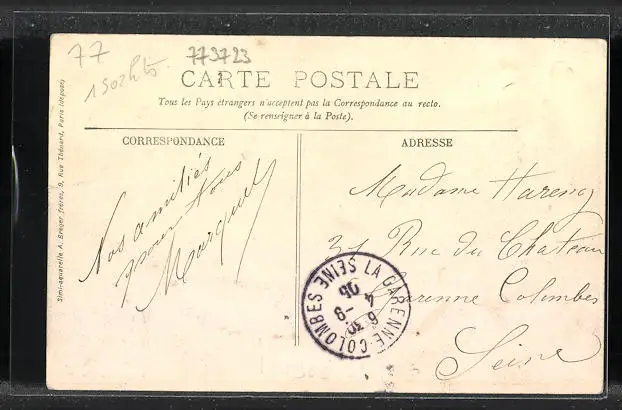 77
773723
CARTE POSTALE
Tous les Pays étrangers n'acceptent pas la Correspondance au recto.
(Se renseigner à la Poste).
CORRESPONDANCE
ADRESSE
Simi-aquarelle A. Breger frères, 9, Rue Thénard, Paris (déposé)
Nos amitiés
pour vous
Marquet
Madame Hareng
Rue du Chateau
Garenne Colombes
Seine
LA GARENNE-COLOMBES SEINE
6 30
4 -9
05